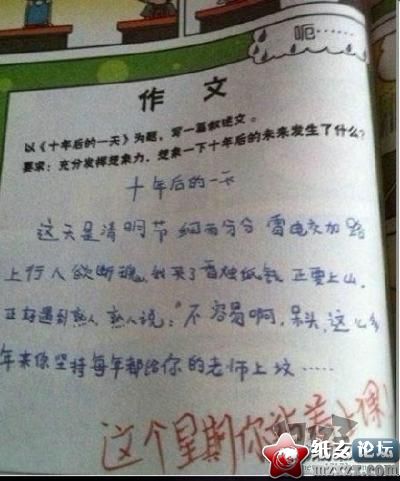 呃……
作 文
以《十年后的一天》为题，写一篇叙述文。
要求：充分发挥想象力，想象一下十年后的未来发生了什么？
十年后的一天
这天是清明节 细雨分分 雷电交加 路
上行人欲断魂，我买了香烛纸钱 正要上山，
正好遇到熟人 熟人说：“不容易啊，呆头，这么多
年来你坚持每年都给你的老师上坟……
这个星期你站着上课！
纸友论坛